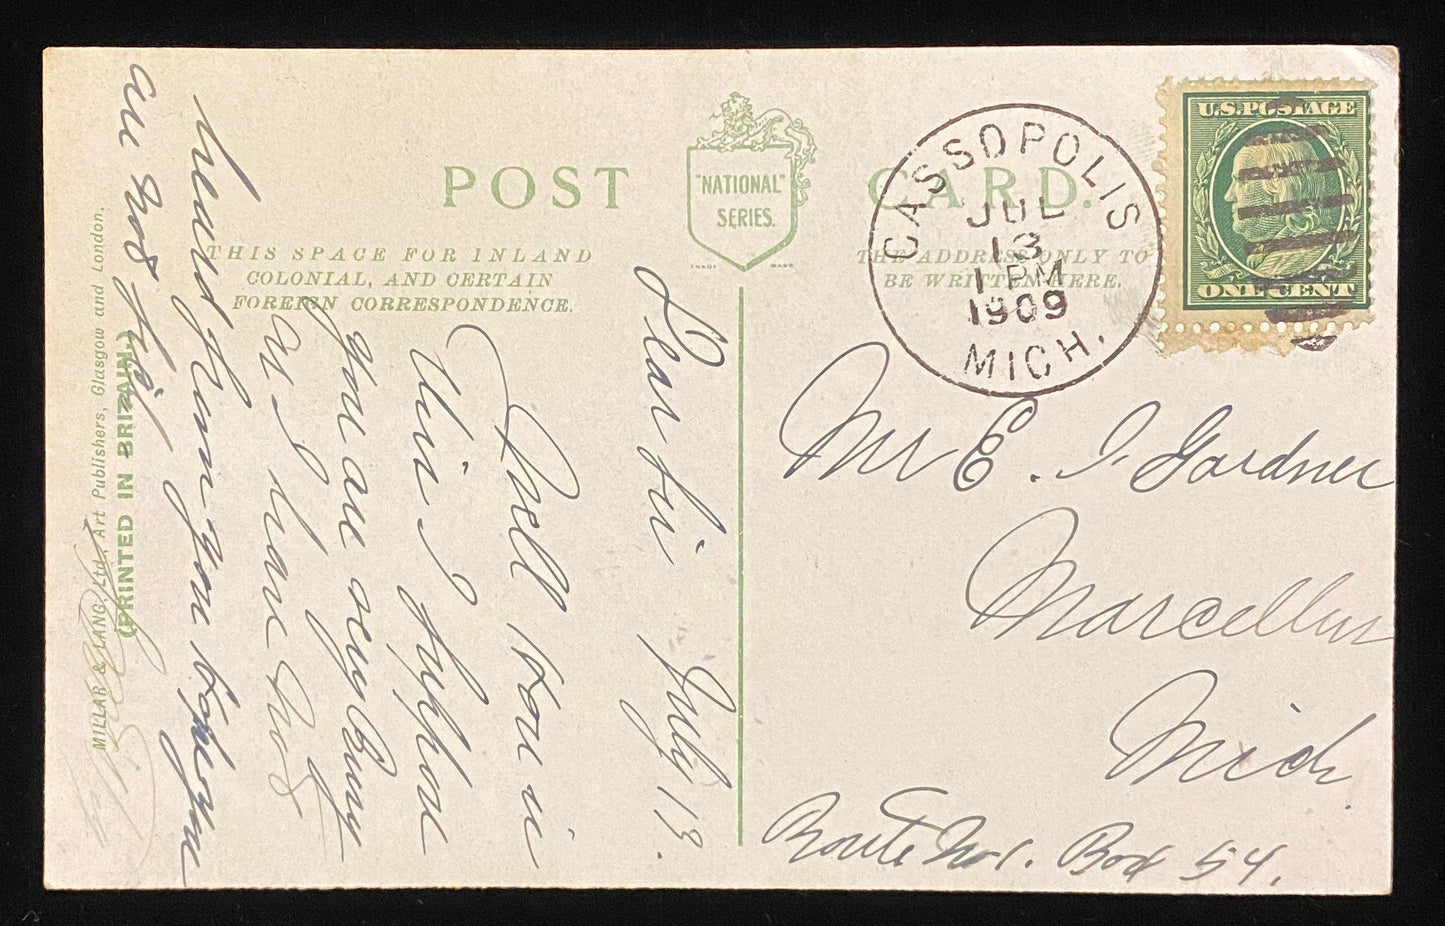 POST CARD.
"NATIONAL"
SERIES.
TRADE MARK
THIS SPACE FOR INLAND
COLONIAL, AND CERTAIN
FOREIGN CORRESPONDENCE.
THE ADDRESS ONLY TO
BE WRITTEN HERE.
U.S. POSTAGE
ONE CENT
CASSOPOLIS
JUL
13
1 PM
1909
MICH.
Mr E. I. Gardner
Marcellus
Mich.
Route No 1. Box 54.
July 13.
Dear
Well how is
this I suppose
you are very busy
as I have not
heard from you
MILLAR & LANG, Ltd., Art Publishers, Glasgow and London.
(PRINTED IN BRITAIN.)